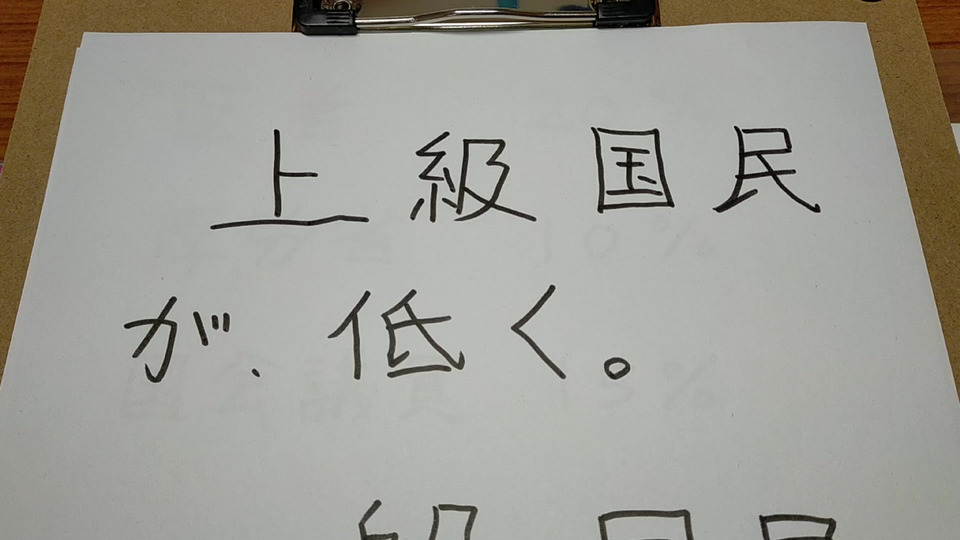 上級国民
が、低く。